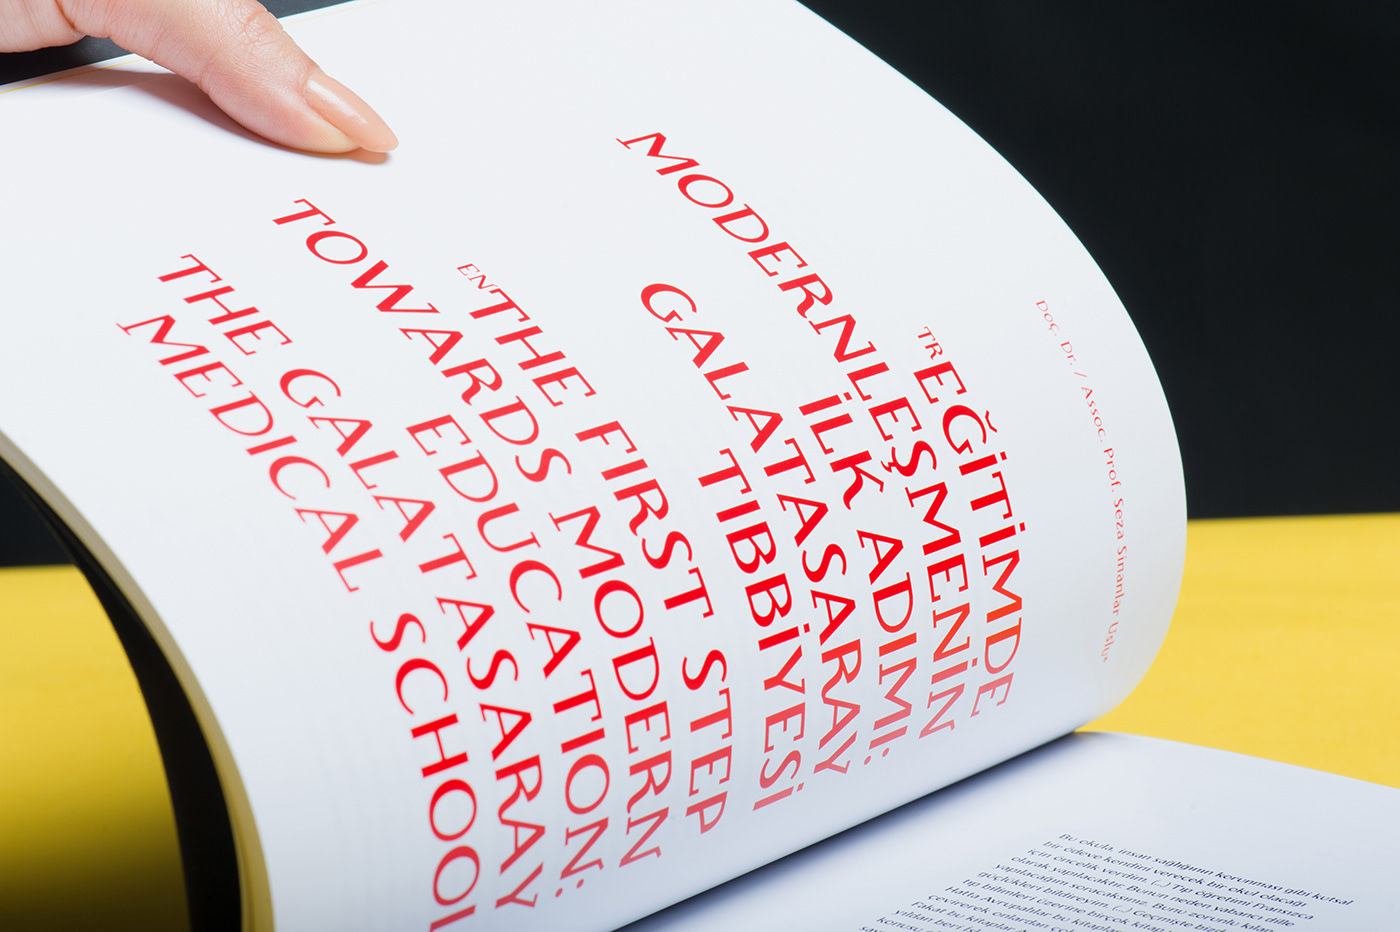 Doç. Dr. / Assoc. Prof. Seza Sinanlar Uslu
TR EĞİTİMDE
MODERNLEŞMENİN
İLK ADIMI:
GALATASARAY
TIBBİYESİ
EN THE FIRST STEP
TOWARDS MODERN
EDUCATION:
THE GALATASARAY
MEDICAL SCHOOL
Bu okula, insan sağlığının korunması gibi kutsal
bir ödeve kendini verecek bir okul olacağı
için öncelik verdim. (...) Tıp öğretimi Fransızca
olarak yapılacaktır. Bunun neden yabancı dille
yapılacağını soracaksınız. Bunu zorunlu kılan
güçlükleri bildireyim. (...) Geçmişte bizde
Tıp bilimleri üzerine birçok kitap
Hatta Avrupalılar bu kitapları
çevirerek onlardan
Fakat bu kitaplar
yıldan beri
konusu